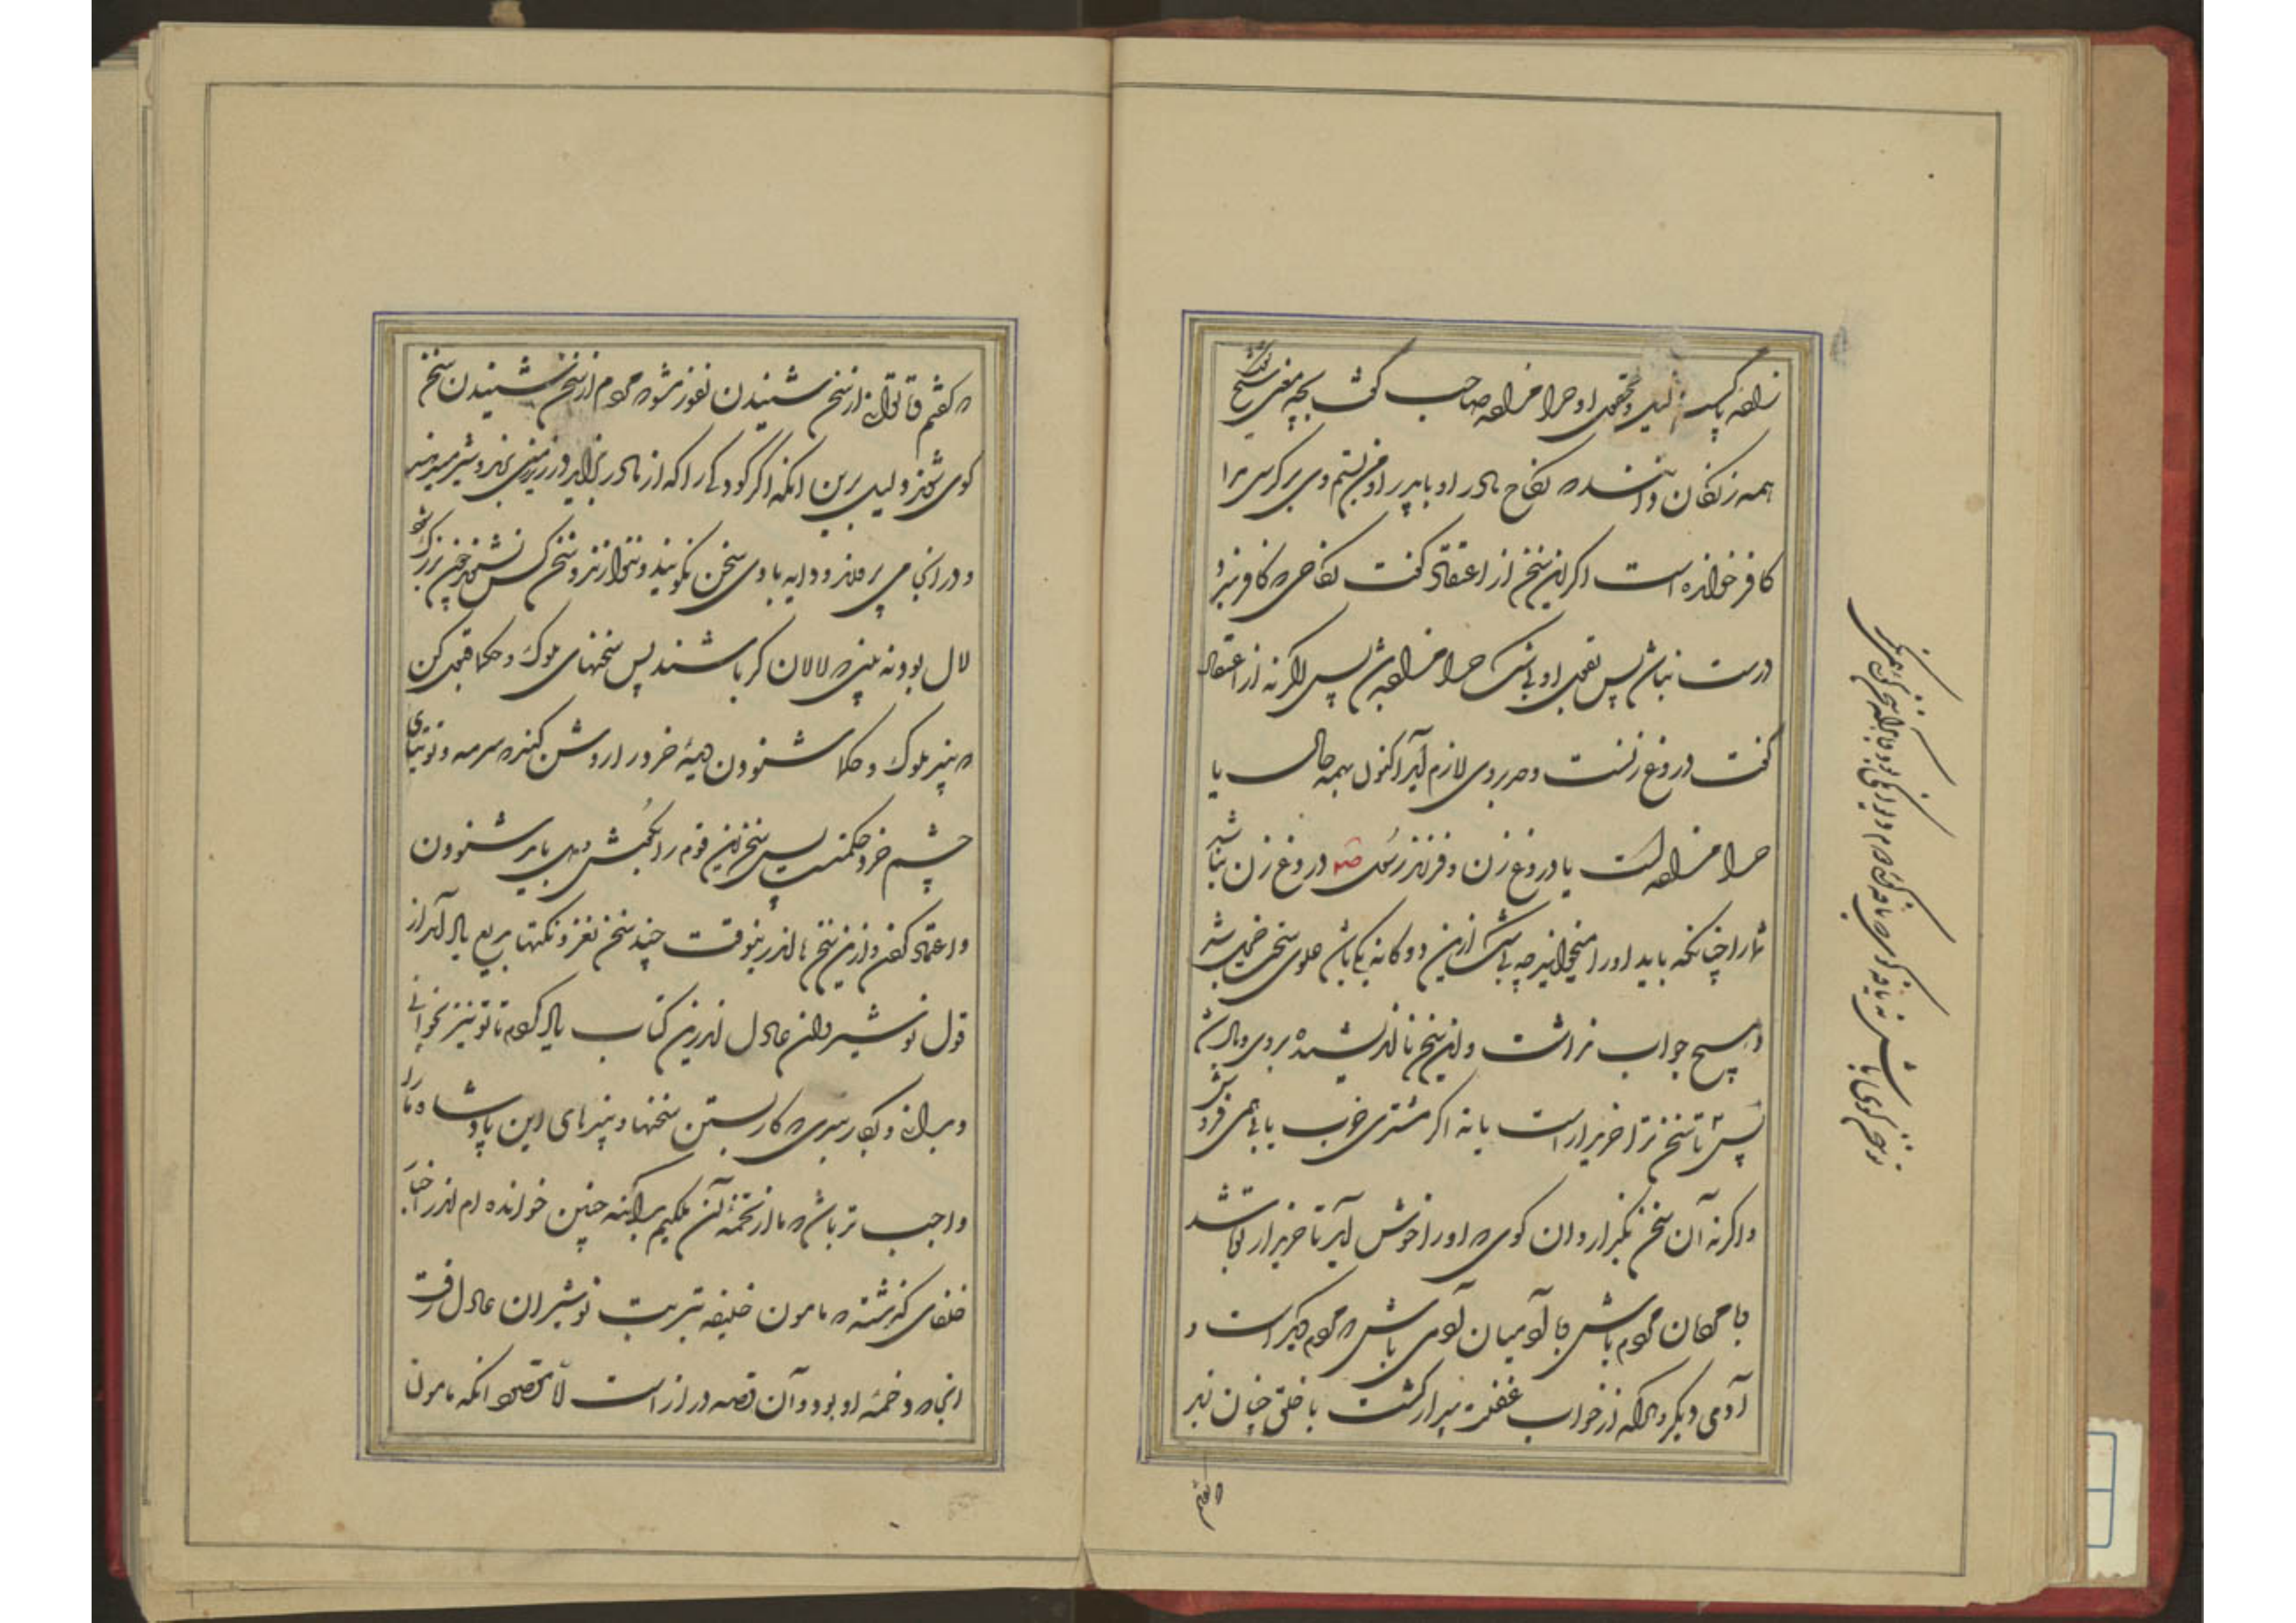 زاده پاک نیست و بقول او حرامزاده صاحب گفت بچه معنی شیخ گفت
همه زنکان دانند که نکاح مادر او با پدر او من بستم و وی بر کرسی مرا
کافر خوانده است اگر این سخن از اعتقاد گفت نکاحی که کافر بندد
درست نباشد پس بقول او بی‌شک حرامزاده باشد پس اگر نه از اعتقاد
گفت دروغ زنست و حد بر وی لازم آید اکنون بهمه حال یا
حرامزاده است یا دروغ زن و فرزند رسول صلعم دروغ زن نباشد
شما را چنانکه باید او را میخوانید چه بی‌شک ازین دوگانه یکی باشد علوی سخت خجل شد
و هیچ جواب نداشت و این سخن نااندیشیده بر وی وبال شد
پس تا سخن ترا خریدار است یا نه اگر مشتری خوب یابی همی فروش
و اگر نه آن سخن بگذار و آن گوی که او را خوش آید تا خریدار تو باشد
با مردمان مردم باش با آدمیان آدمی باش که مردم دیگر است و
آدمی دیگر و هر آنکه از خواب غفلت بیدار گشت با خلق چنان زید
که گفتم
که گفتم تا توانی از سخن شنیدن نفور مشو که مردم از سخن شنیدن سخن
گوی شوند دلیل برین آنکه اگر کودکی را که از مادر بزاید در زیرزمینی برند و شیر میدهند
و در آنجا می پرورند و دایه با وی سخن نگویند و ننوازند و سخن کس نشنود چون بزرگ شود
لال بود و نه بینی که لالان کر باشند پس سخنهای ملوک و حکما قبول کن
که پند ملوک و حکما شنودن دیده خرد را روشن کند که سرمه و توتیای
چشم خرد حکمتست پس سخن این قوم را بگوش دل باید شنودن
و اعتماد کردن و ازین سخن ما اندرینوقت چند سخن نغز و نکتهای بدیع یاد آمد از
قول نوشیروان عادل اندرین کتاب یاد کردم تا تو نیز بخوانی
و بدانی و بکار بندی که کار بستن سخنها و پندهای این پادشاه ما را
واجب تر باشد که ما از تخمه آن ملکیم بدانکه چنین خوانده‌ام اندر اخبار
خلفای گذشته که مامون خلیفه بتربت نوشیروان عادل رفت
آنجا که دخمه او بود و آن قصه دراز است لا مقصود آنکه مامون